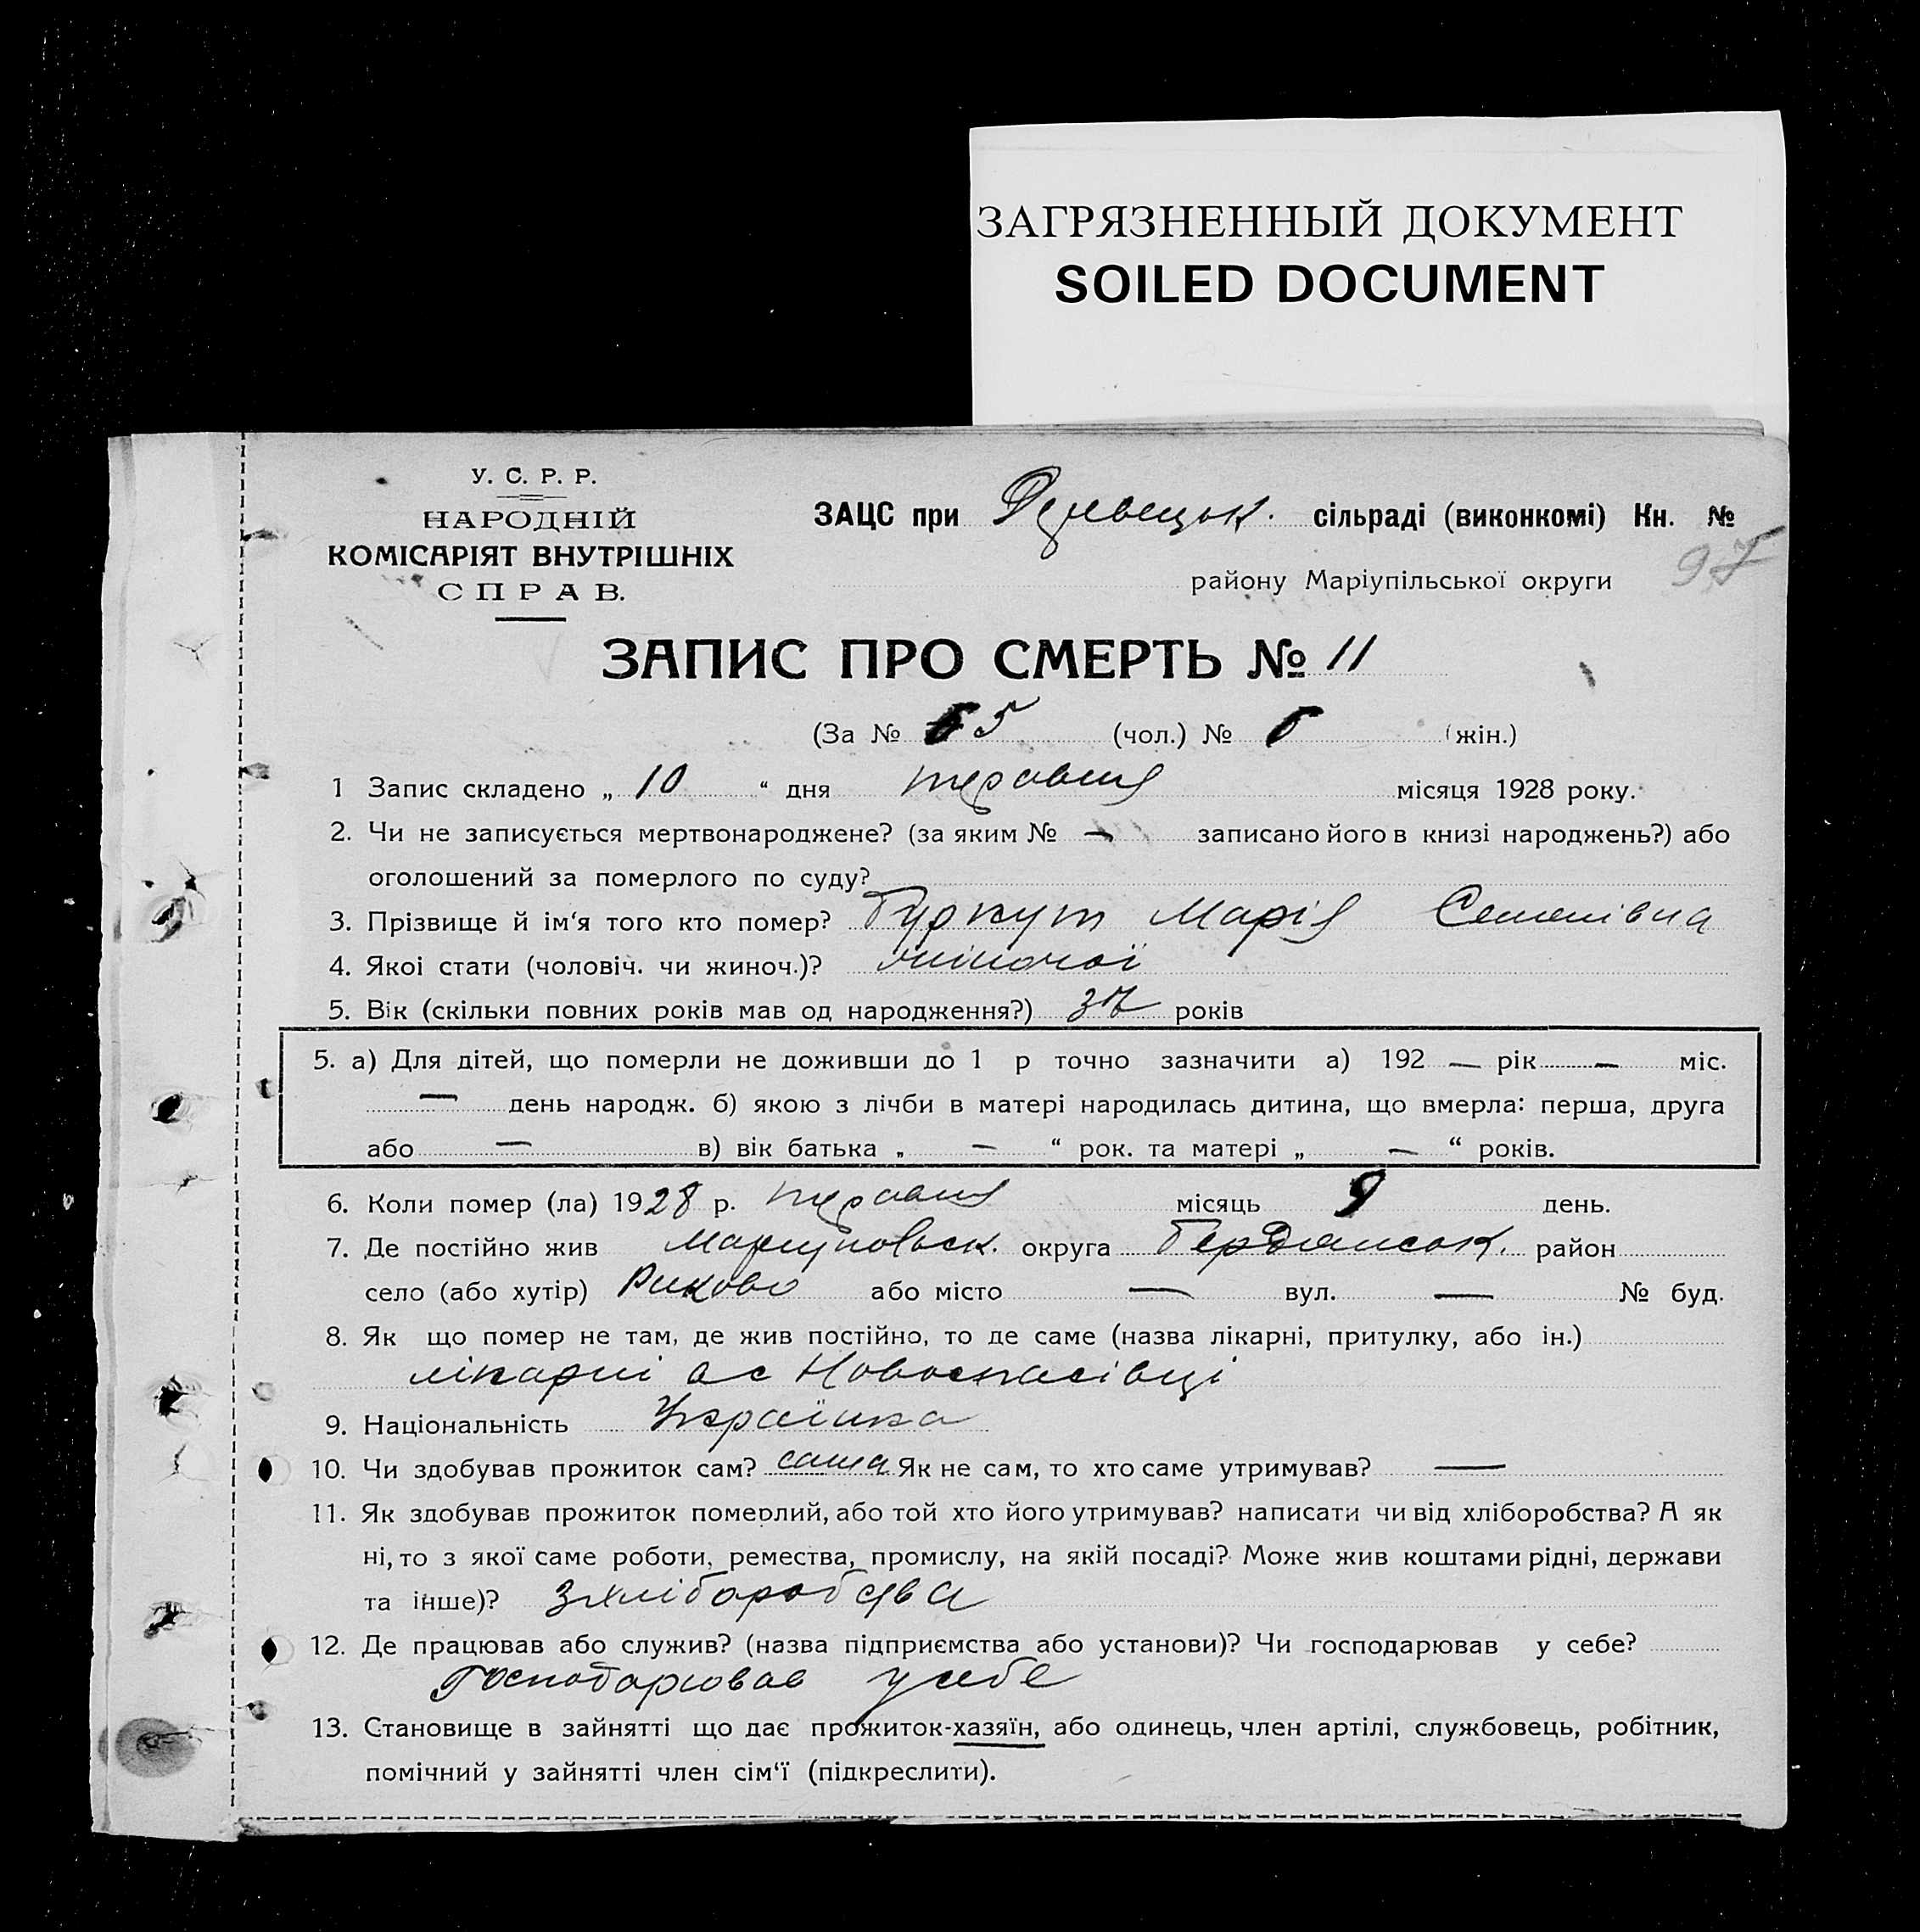 ЗАГРЯЗНЕННЫЙ ДОКУМЕНТ
SOILED DOCUMENT
У. С. Р. Р.
НАРОДНІЙ
КОМІСАРІЯТ ВНУТРІШНІХ
СПРАВ.
ЗАЦС при сільраді (виконкомі) Кн. №
району Маріупільської округи
ЗАПИС ПРО СМЕРТЬ № 11
(За № 5 (чол.) № 6 (жін.)
1 Запис складено „ 10 “ дня травня місяця 1928 року.
2. Чи не записується мертвонароджене? (за яким № — записано його в книзі народжень?) або
оголошений за померлого по суду?
3. Прізвище й ім‘я того кто помер? Гуркут Марія Семенівна
4. Якоі стати (чоловіч. чи жиноч.)? жіночої
5. Вік (скільки повних років мав од народження?) 37 років
5. а) Для дітей, що померли не доживши до 1 р точно зазначити а) 192 — рік — міс.
— день народж. б) якою з лічби в матері народилась дитина, що вмерла: перша, друга
або — в) вік батька „ — “ рок. та матері „ — “ років.
6. Коли помер (ла) 1928 р. травня місяць 9 день.
7. Де постійно жив Мариупольск. округа Бердянськ. район
село (або хутір) або місто — вул. — № буд.
8. Як що помер не там, де жив постійно, то де саме (назва лікарні, притулку, або ін.)
лікарні в с Новоспасівці
9. Національність Українка
10. Чи здобував прожиток сам? сама Як не сам, то хто саме утримував? —
11. Як здобував прожиток померлий, або той хто його утримував? написати чи від хліборобства? А як
ні, то з якої саме роботи, ремества, промислу, на якій посаді? Може жив коштами рідні, держави
та інше)? З хліборобства
12. Де працював або служив? (назва підприємства або установи)? Чи господарював у себе?
Господарював у себе
13. Становище в зайнятті що дає прожиток-хазяїн, або одинець, член артілі, службовець, робітник,
помічний у зайнятті член сім‘ї (підкреслити).